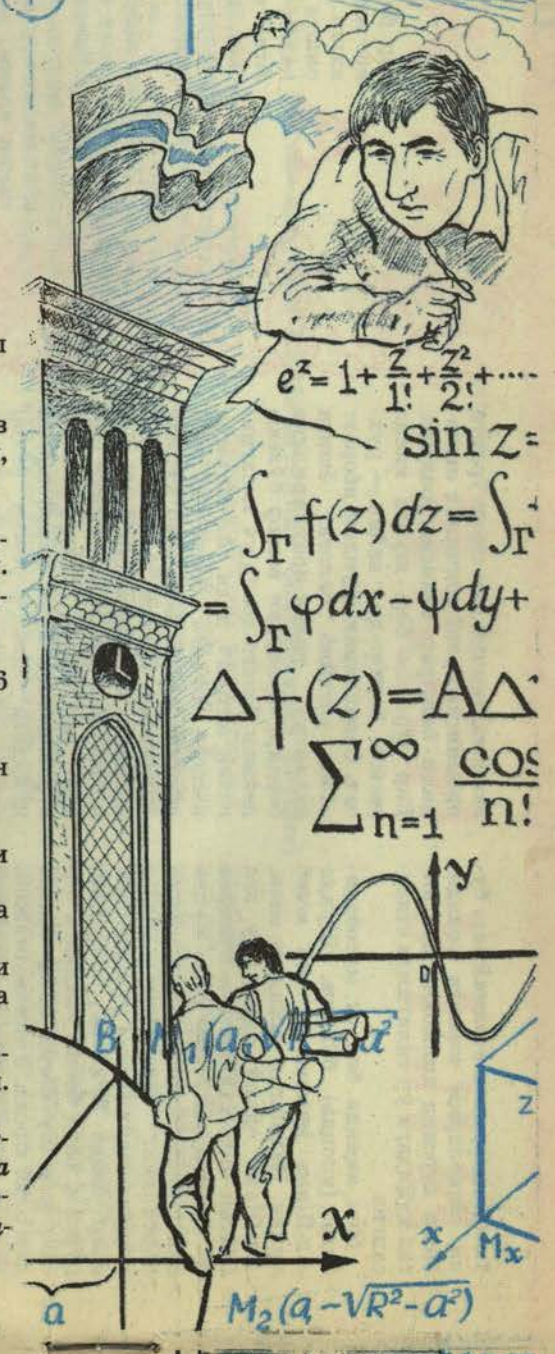 e^z = 1 + z/1! + z²/2! + ....
sin z =
∫_Γ f(z)dz = ∫_Γ
= ∫_Γ φdx - ψdy +
Δf(z) = AΔ
∑_{n=1}^∞ cos/n!
y
B M₁(a, √R²-a²
z
x
x
Mₓ
a
M₂(a, -√R²-a²)